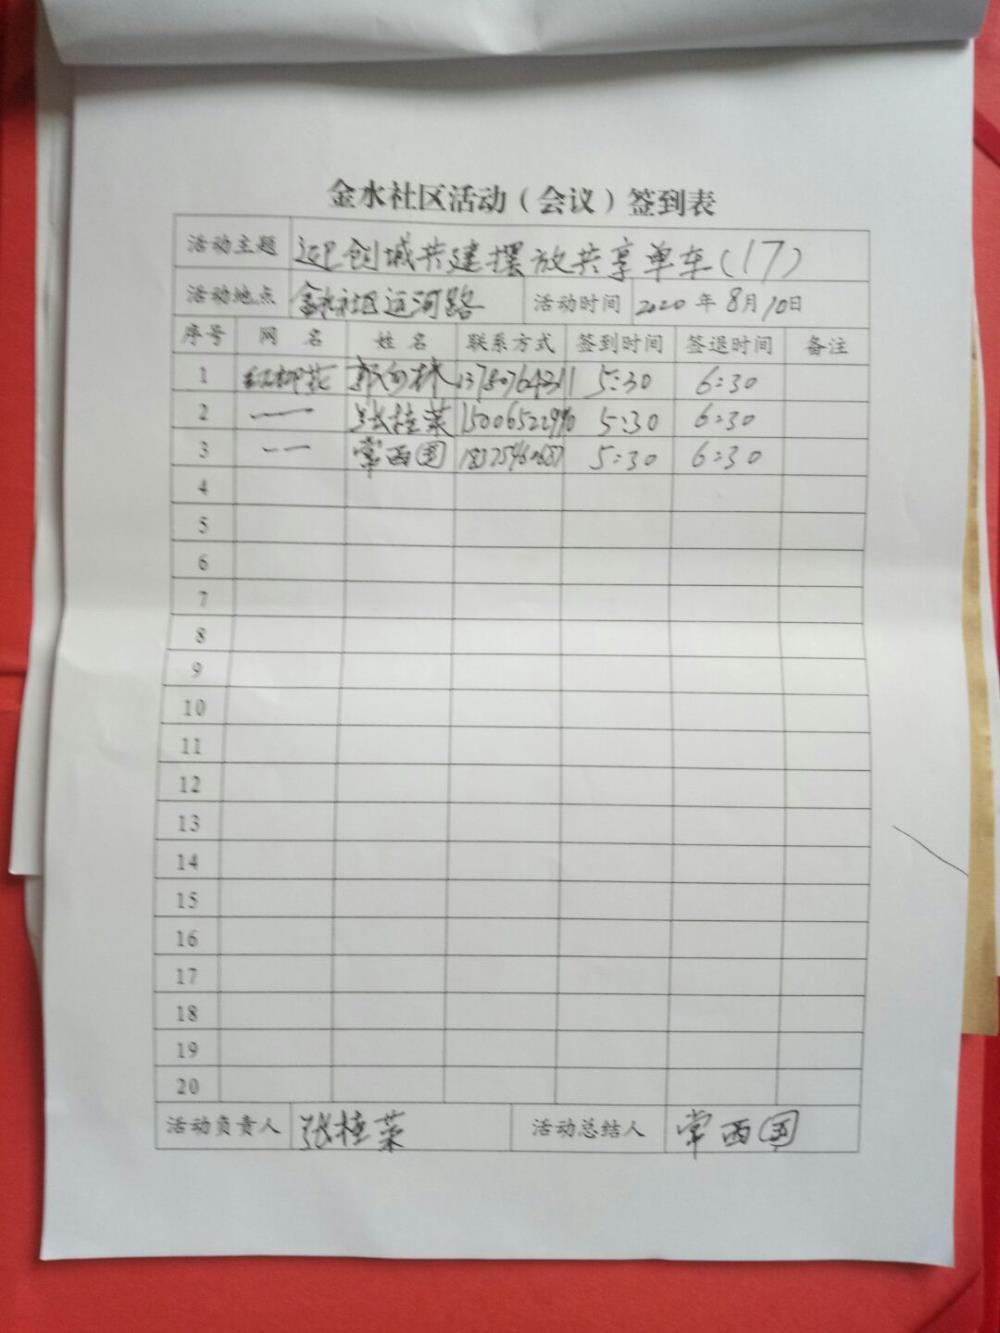 金水社区活动（会议）签到表
活动主题 迎创城共建摆放共享单车(17)
活动地点 金水社区运河路 活动时间 2020年8月10日
序号 网名 姓名 联系方式 签到时间 签退时间 备注
1 红柳花 5:30 6:30
2 — 张桂菜 5:30 6:30
3 — 常西国 5:30 6:30
4
5
6
7
8
9
10
11
12
13
14
15
16
17
18
19
20
活动负责人 张桂菜 活动总结人 常西国